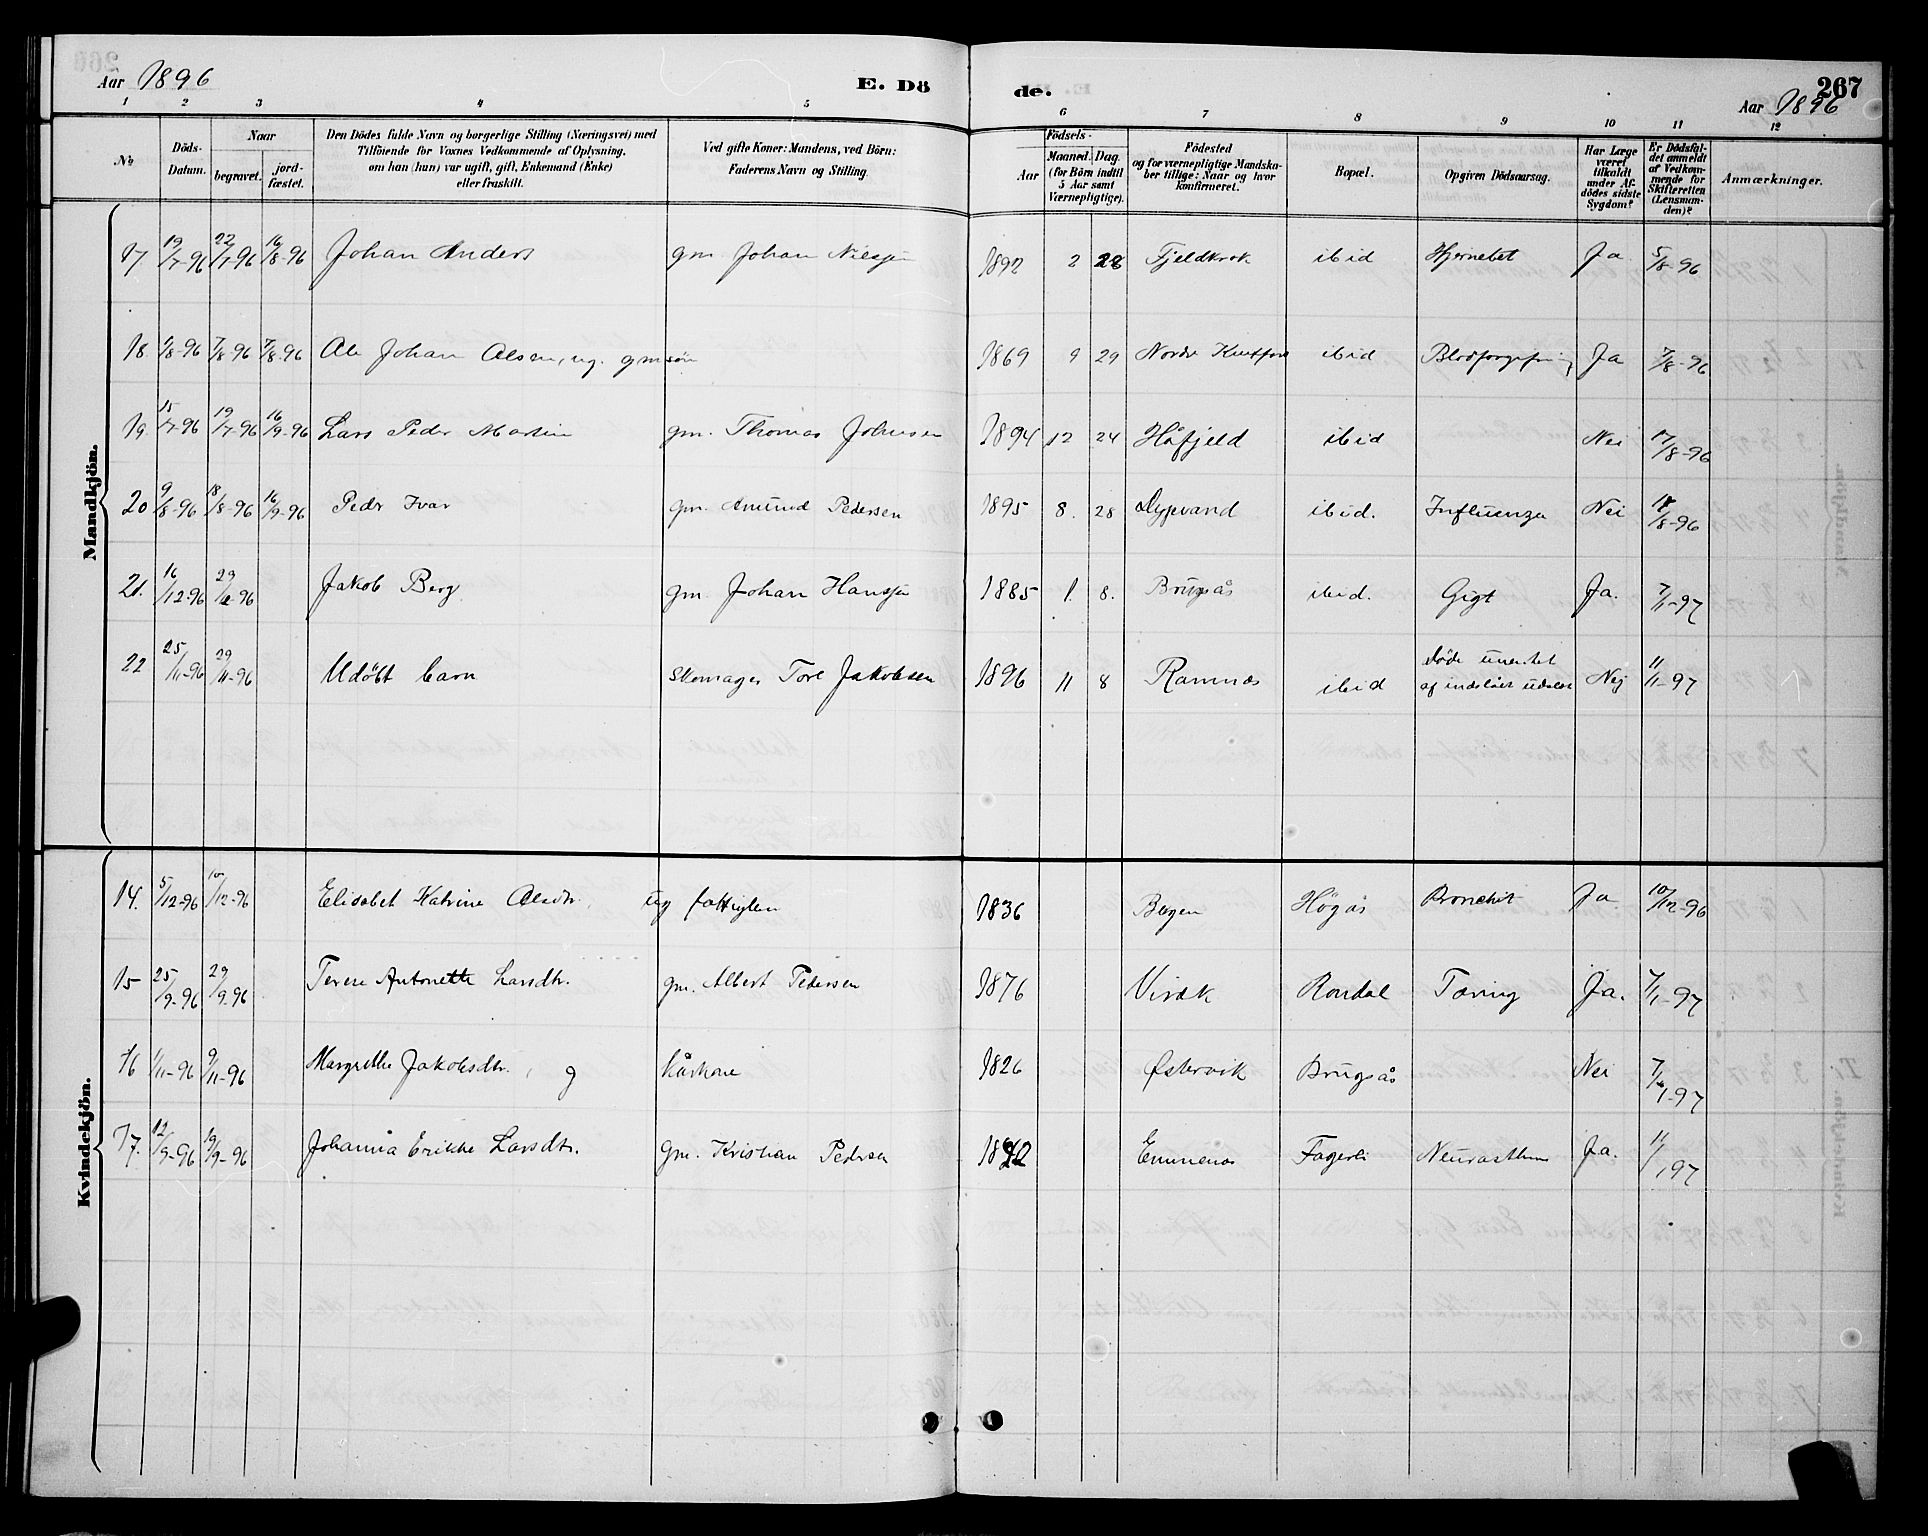 Aar 1896
E. Dö
de.
267
Aar 1896
1 2 3 4 5 6 7 8 9 10 11 12
No
Döds-
Datum.
Naar
begravet.
jord-
fæstet.
Den Dödes fulde Navn og borgerlige Stilling (Næringsvei) med
Tilföiende for Voxnes Vedkommende af Oplysning,
om han (hun) var ugift, gift, Enkemand (Enke)
eller fraskilt.
Ved gifte Koner: Mandens, ved Börn:
Faderens Navn og Stilling.
Födsels-
Aar
Maaned. Dag.
(for Börn indtil
5 Aar samt
Værnepligtige).
Födested
og for værnepligtige Mandska-
ber tillige: Naar og hvor
konfirmeret.
Bopæl.
Opgiven Dödsaarsag.
Har Læge
været
tilkaldt
under Af-
dödes sidste
Sygdom?
Er Dödsfal-
det anmeldt
af Vedkom-
mende for
Skifteretten
(Lensman-
den)?
Anmærkninger.
Mandkjön.
17. 19/7-96 22/7-96 16/8-96 Johan Anders gm. Johan Nilssen 1892 2 28 Fjeldkrok ibid Hjernebet Ja 5/8-96
18 2/8-96 7/8-96 7/8-96 Ole Johan Olsen, ug. gmsön 1869 9 29 Nordre ibid Blodforgiftning Ja 7/8-96
19. 15/7-96 19/7-96 16/9-96 Lars Peder Martin gm. Thomas Johnsen 1894 12 24 Håfjeld ibid Nei 17/8-96
20 9/8-96 18/8-96 16/9-96 Peder Ivar gm. Amund Pedersen 1895 8. 28 Dypvand ibid. Influenza Nei 18/8-96
21. 16/12-96 29/12-96 Jakob Berg gm. Johan Hanssen 1885 1. 8. Brugsås ibid. Gigt Ja. 7/1-97
22 25/11-96 29/11-96 Udöbt barn Skomager Tore Jakobsen 1896 11 8 Ramnås ibid döde uventet
af indslået udslet Nej 11/1-97
Kvindekjön.
14. 5/12-96 10/12-96 Elisabet Katrine Olsdtr. ug fattiglem 1836 Bergen Högås Bronchit Ja. 10/12-96
15 25/9-96 29/9-96 Antonette Larsdtr. gm. Albert Pedersen 1876 Virak Rondal Tæring Ja. 7/1-97
16 1/11-96 9/11-96 Margrethe Jakobsdtr., g kårkone 1826 Østervik Brugsås Nei 7/1-97
17. 12/9-96 19/9-96 Johanna Erikke Larsdtr. gm. Kristian Pedersen Emmenæs Fagerli Neurasthen Ja. 11/1 97